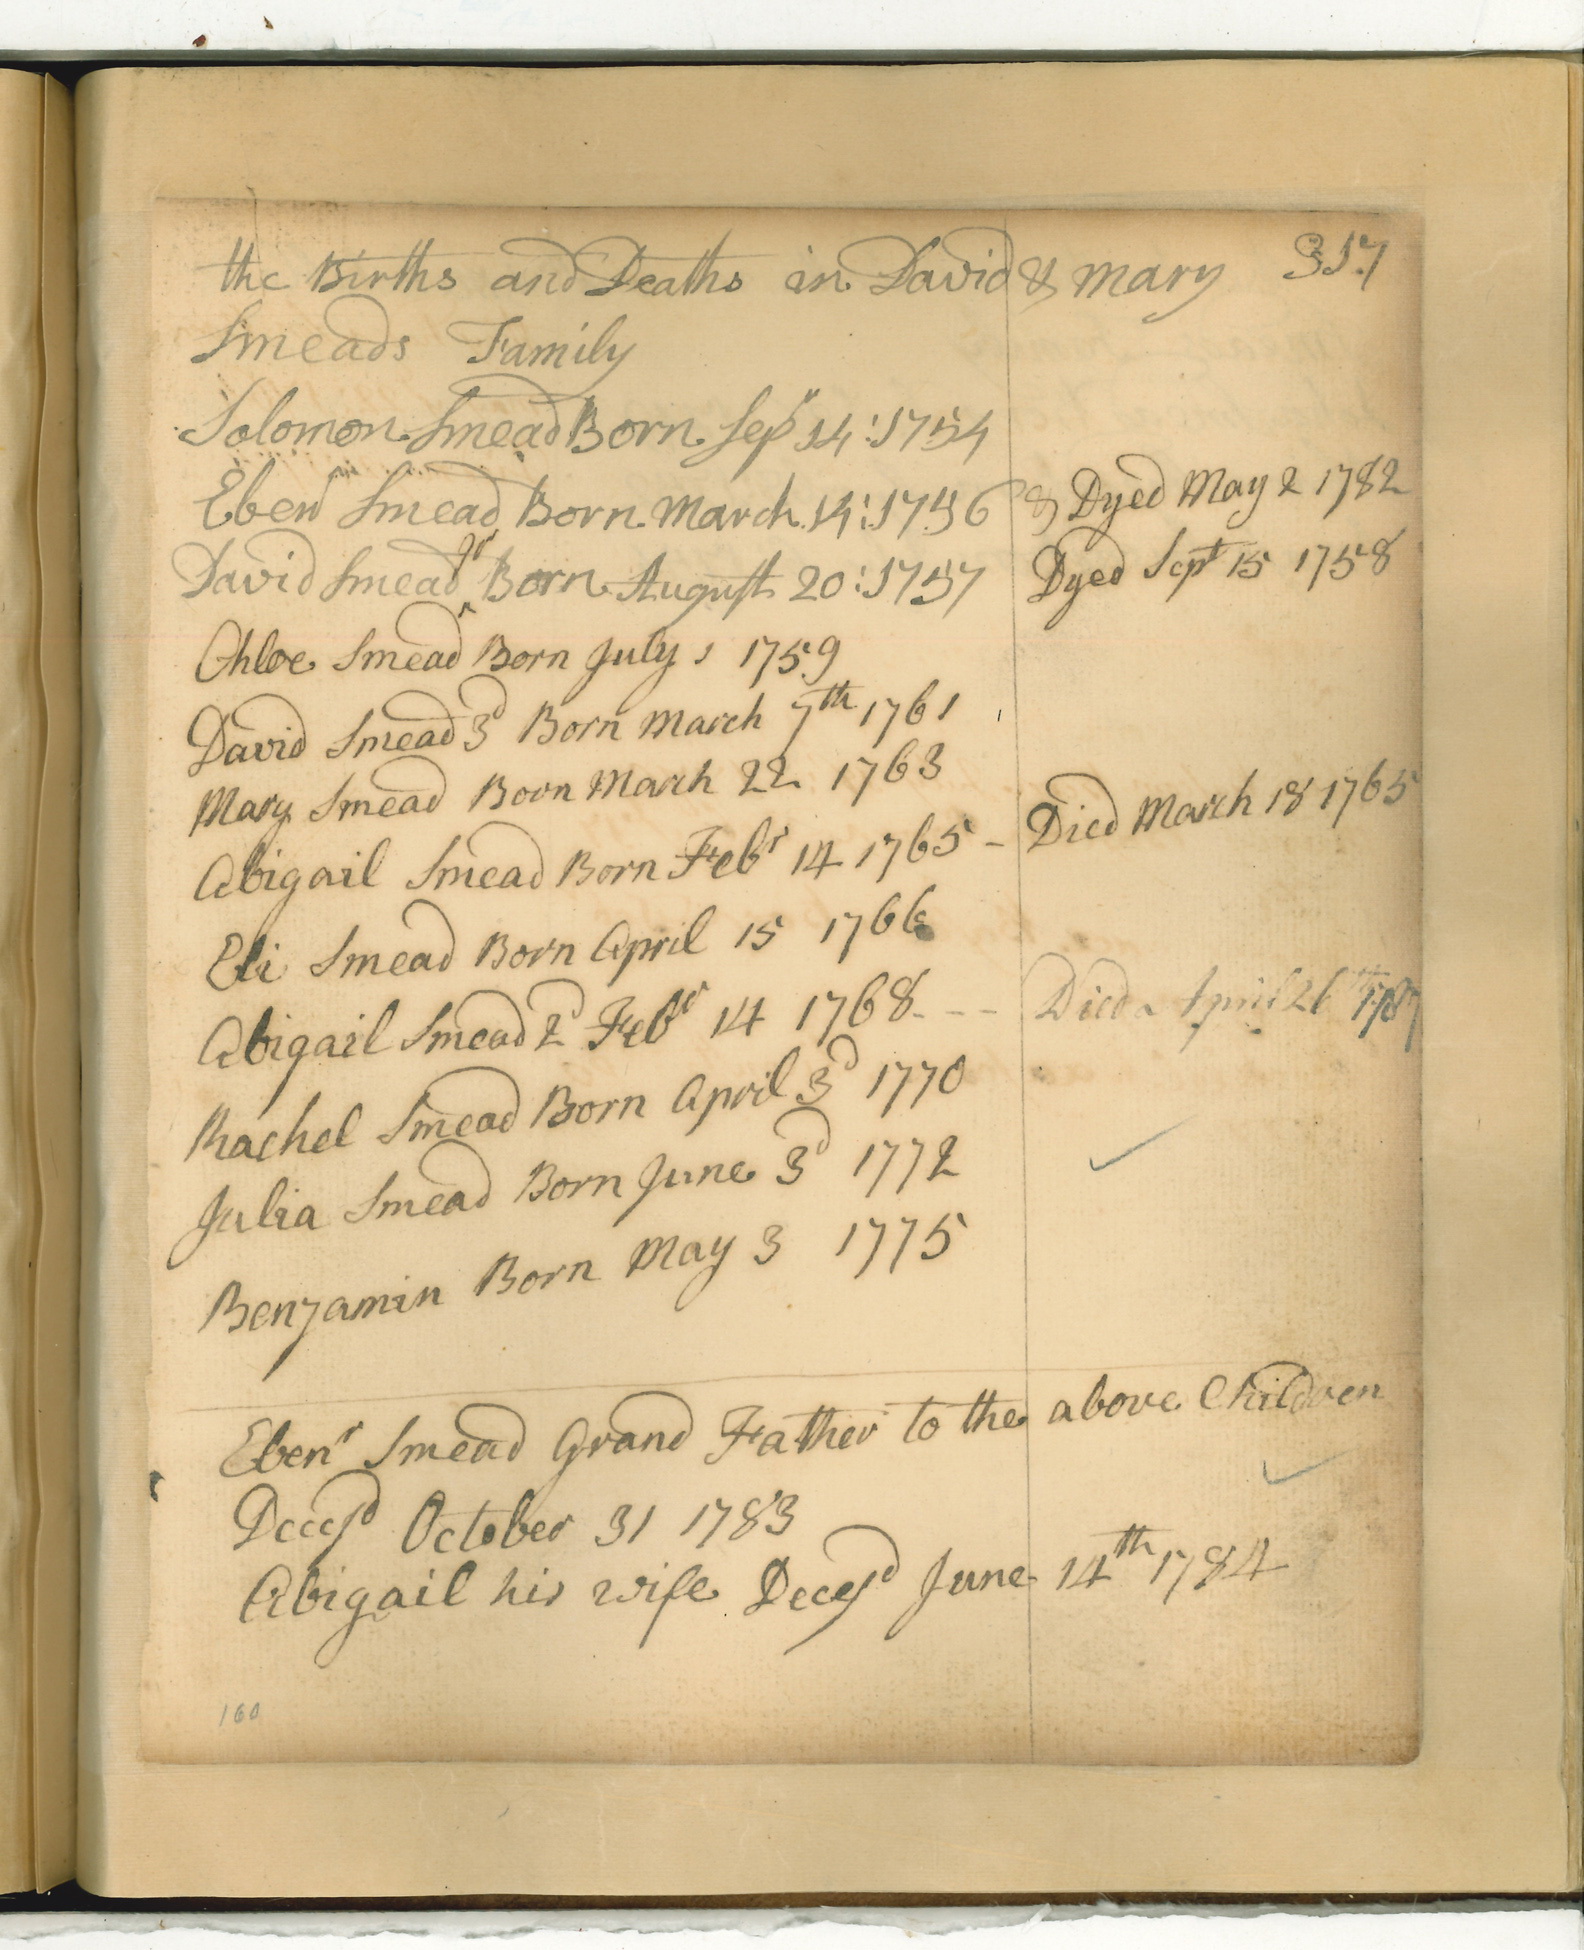 the Births and Deaths in David & Mary 317
Smeads Family
Solomon Smead Born Sepr 14: 1754
Ebenr Smead Born March 14: 1756 & Dyed May 2 1782
David Smead Jr Born August 20: 1757 Dyed Sept 15 1758
Chloe Smead Born July 1 1759
David Smead 3d Born March 7th 1761
Mary Smead Born March 22 1763
Abigail Smead Born Febr 14 1765 - Died March 18 1765
Eli Smead Born April 15 1766
Abigail Smead 2d Febr 14 1768 - - - Died April 26th 1787
Rachel Smead Born April 3d 1770
Julia Smead Born June 3d 1772
Benjamin Born May 3 1775
Ebenr Smead Grand Father to the above Children
Decesd October 31 1783
Abigail his wife Decesd June 14th 1784
160